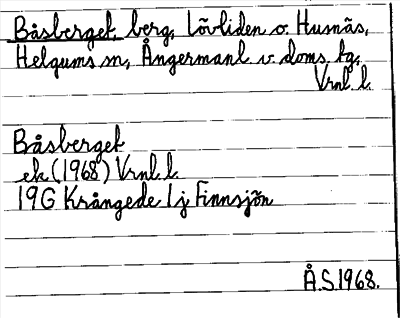 Båsberget, berg, Lövliden o. Husnäs,
Helgums sn, Ångermanl v. doms. tg,
Vrnl. l.
Båsberget
ek (1968) Vrnl. l.
19G Krångede 1j Finnsjön
Å.S. 1968.